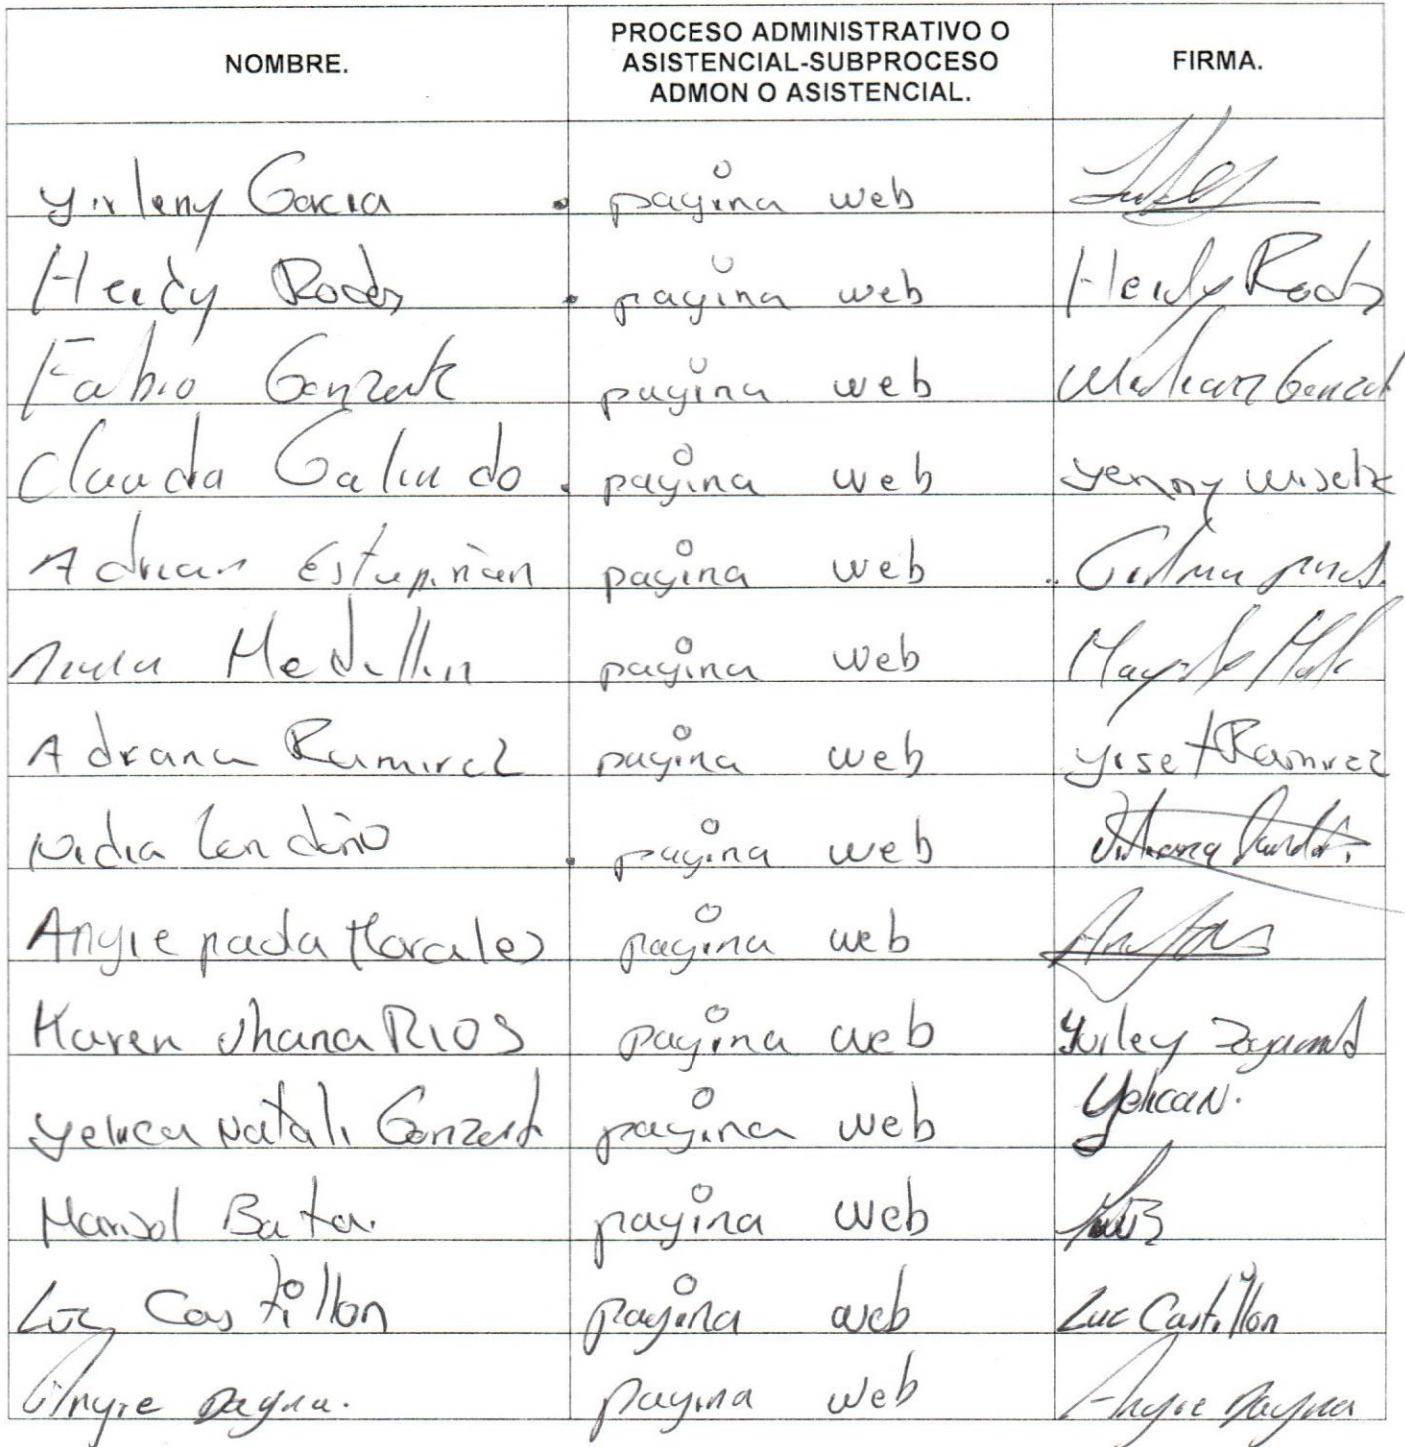 NOMBRE. PROCESO ADMINISTRATIVO O ASISTENCIAL-SUBPROCESO ADMON O ASISTENCIAL. FIRMA.
Yirleny Garcia pagina web
Heidy Rodrz pagina web Heidy Rodrz
Fabio Gonzalez pagina web
Claudia Galindo pagina web Yenny
Adrian Estupiñan pagina web
Medellin pagina web
Adriana Ramirez pagina web Yiset Ramirez
Nidia Londoño pagina web
Angie paola Morales pagina web
Karen Jhana RIOS pagina web Yurley
Yelica Natali Gonzalez pagina web Yelica N.
Marisol Bata. pagina web
Luz Castillon pagina web Luz Castillon
Angie Dayna. pagina web Angie Dayna